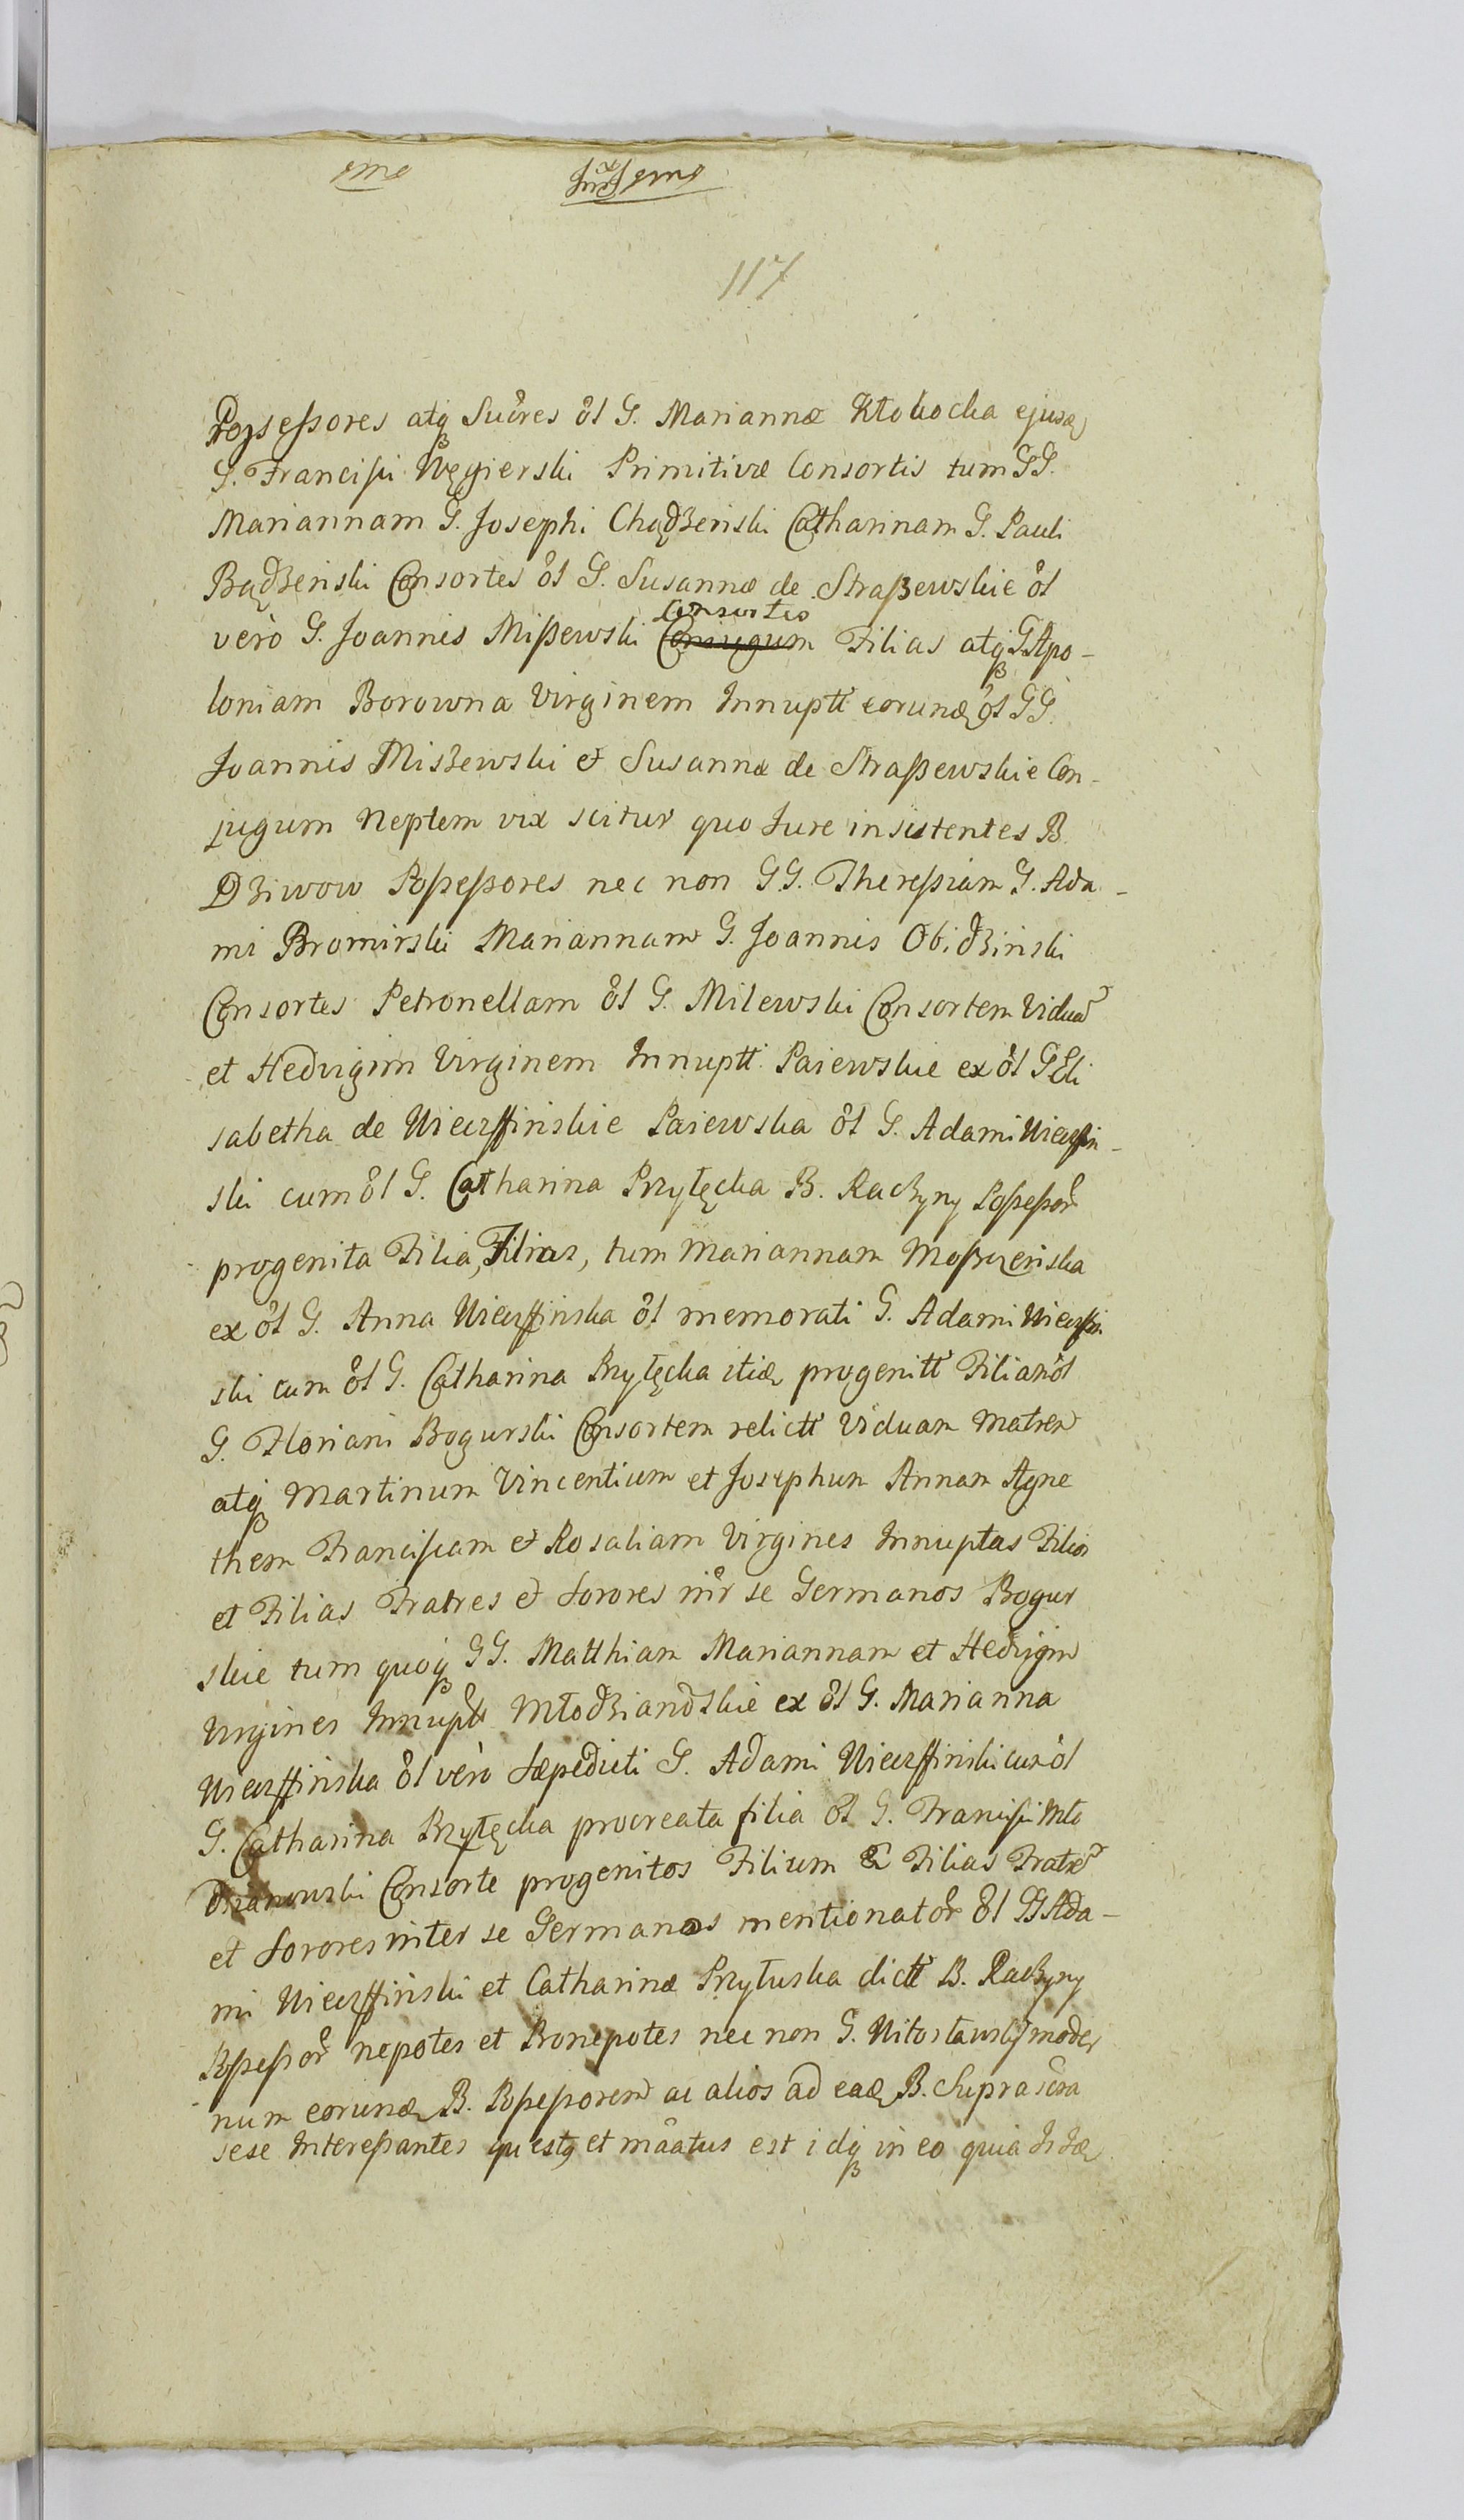 117
Possessores atq Suores ol G. Mariannæ Ktokocka ejusd
G. Francisci Węgierski Primitivæ Consortis tum GG.
Mariannam G. Josephi Chądzenski Catharinam G. Pauli
Bądzenski Consortes ol G. Susannæ de Straszewskie ol
vero G. Joannis Miszewski Consortis Filias atq G Apo-
loniam Borowna Virginem Innuptt eorund ol GG.
Joannis Miszewski et Susannæ de Straszewskie Con-
jugum Neptem vix scitur quo Jure insistentes B.
Dziwow Possessores nec non GG. Theressiam G. Ada-
mi Bromirski Mariannam G. Joannis Obidzinski
Consortes Petronellam ol G. Milewski Consortem Viduam
et Hedvigim Virginem Innuptt Paiewskie ex ol G Eli
sabetha de Wierzffinskie Paiewska ol G. Adami Wierzffin-
ski cum ol G. Catharina Przyłęcka B. Raczyny Possessor
progenita Filia, Filias, tum Mariannam
ex ol G. Anna Wierzffinska ol memorati G. Adami Wierzffin
ski cum ol G. Catharina Przyłęcka itid progenitt Filia ol
G. Floriani Bogurski Consortem relictt Viduam Matrem
atq Martinum Vincentium et Josephum Annam Agne
them Franciscam et Rosaliam Virgines Innuptas Filios
et Filias Fratres et Sorores intr se Germanos Bogur
skie tum quoq GG. Matthiam Mariannam et Hedvigim
Virgines Innuptt Młodzianowskie ex ol G. Marianna
Wierzffinska ol vero Sæpedicti G. Adami Wierzffinski cum ol
G. Catharina Przyłęcka procreata filia ol G. Francisci Mło
dzianowski Consorte progenitos Filium et Filias Fratrem
et Sorores inter se Germanos mentionator ol GG Ada-
mi Wierzffinski et Catharinæ Przyłuska dictt B. Raczyny
Possessor nepotes et Pronepotes nec non G. moder
num eorund B. Possessorem ac alios ad ead B. Supra scra
sese Interessantes quest et maatus est idq in eo quia